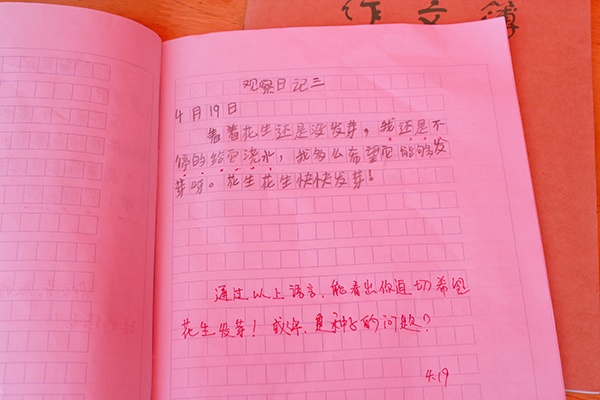 作文簿
观察日记三
4月19日
看着花生还是没发芽，我还是不
停的给它浇水，我多么希望它能够发
芽呀。花生花生快快发芽！
通过以上语言，能看出你迫切希望
花生发芽！或许，是种子的问题？
4.19